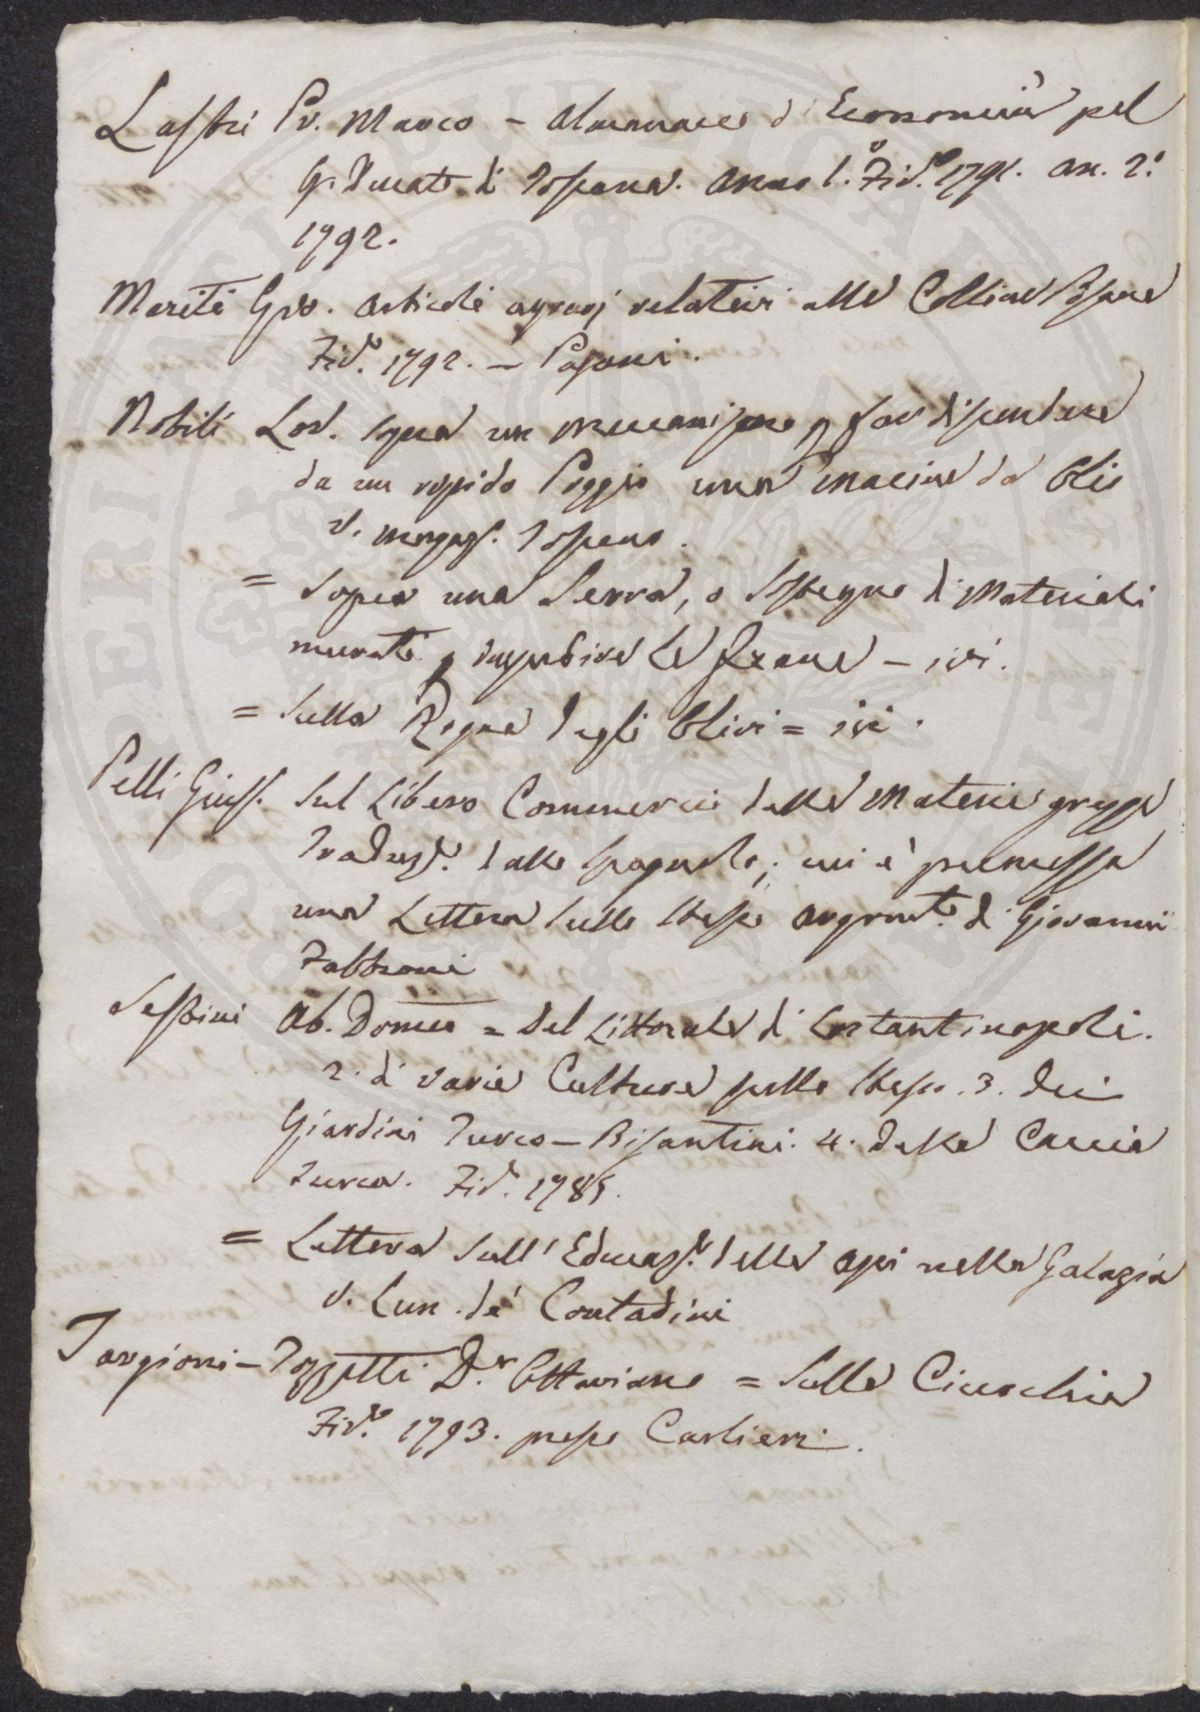 Lastri Pr. Marco – Almanacco d' Economia pel
G. Ducato di Toscana. Anno 1.° Fir.e 1791. an. 2.°
1792.
Mariti Gio. Articoli agrarj relativi alle Colline Pisane
Fir.e 1792. – Pagani.
Nobili Lod. sopra un meccanismo p far discendere
da un ripido Poggio una Macine da Olio
v. magag. Toscano.
= Sopra una Serra, o Sostegno di Materiali
murati p impedire le frane – ivi.
= Sulla Rogna degli Olivi = ivi.
Pelli Gius. Sul Libero Commercio delle Materie gregge
Traduz.e dallo Spagnolo; cui è premessa
una Lettera sullo stesso argom.to di Giovanni
Fabbroni
Sestini Ab. Domco = Del Littorale di Costantinopoli.
2. di varie Culture sullo stesso. 3. Dei
Giardini Turco – Bisantini. 4. della Caccia
Turca. Fir. 1785.
= Lettera sull' Educaz.e delle Api nella Galazia
v. Lun. de' Contadini
Targioni – Tozzetti D.r Ottaviano = Sulle Cicerchie
Fir.e 1793. presso Carlieri.